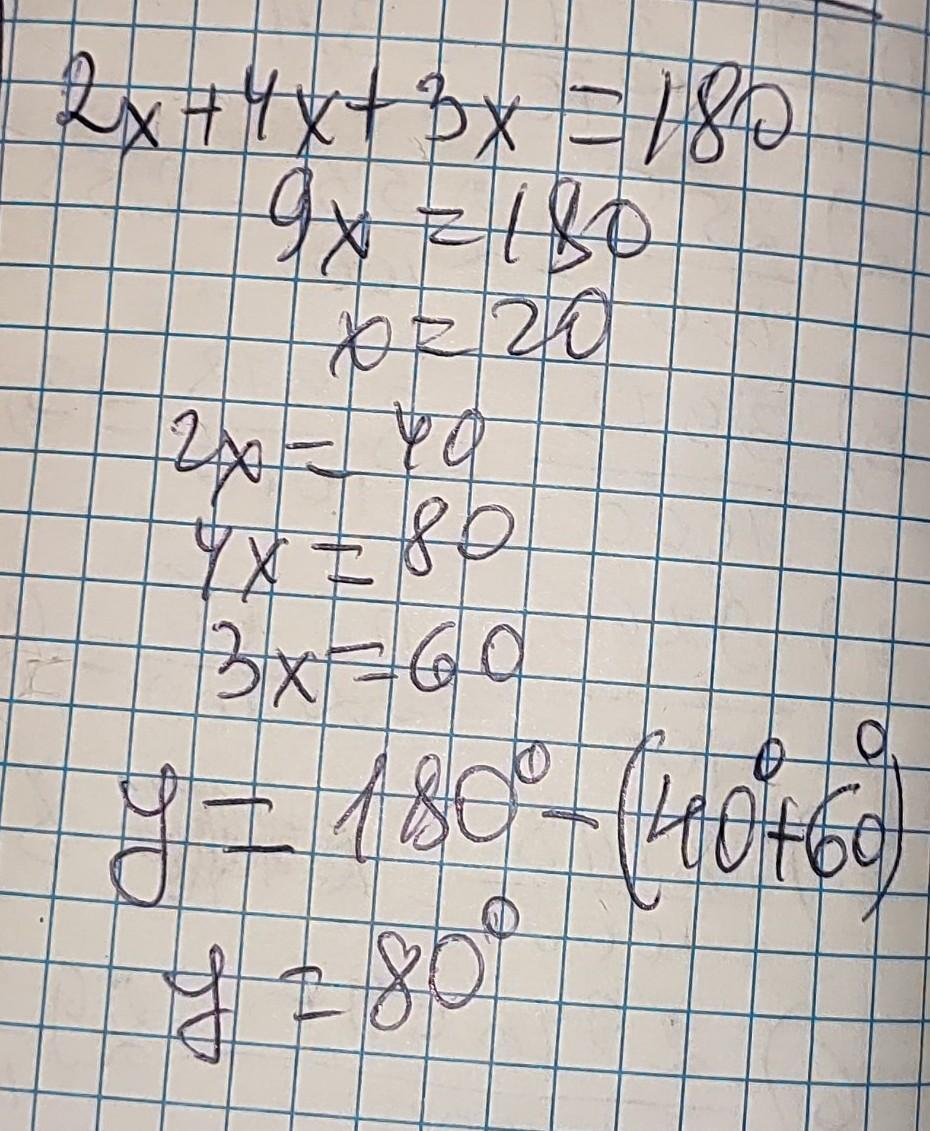 2x+4x+3x=180
9x=180
x=20
2x=40
4x=80
3x=60
y=180°-(40°+60°)
y=80°